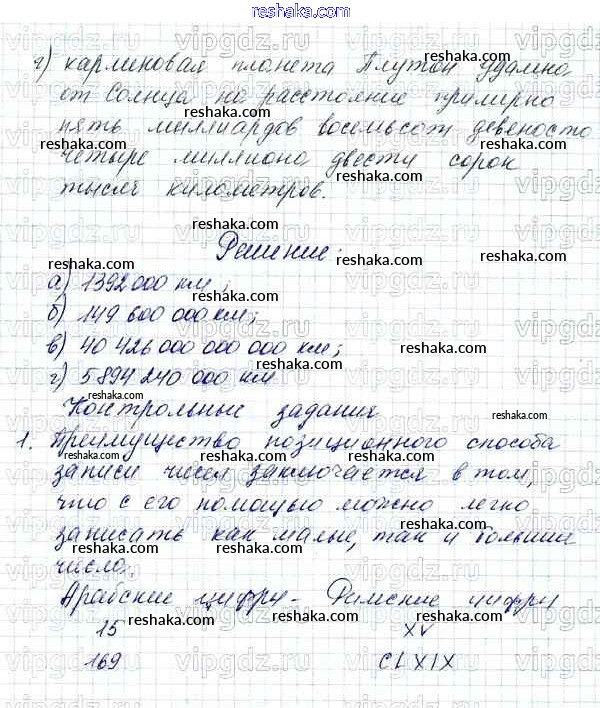 reshaka.com
г) карликовая планета Плутон удалена
от Солнца на расстояние примерно
пять миллиардов восемьсот девяносто
четыре миллиона двести сорок
тысяч километров.
Решение:
а) 1392000 км;
б) 149 600 000 км;
в) 40 426 000 000 000 км;
г) 5 894 240 000 км
Контрольные задания
1. Преимущество позиционного способа
записи чисел заключается в том,
что с его помощью можно легко
записать как малые, так и большие
числа.
Арабские цифры - Римские цифры
15 XV
169 CLXIX